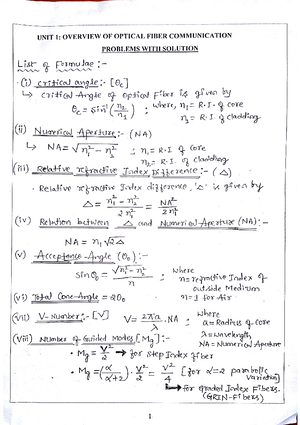 UNIT 1: OVERVIEW OF OPTICAL FIBER COMMUNICATION
PROBLEMS WITH SOLUTION
List of Formulae :-
(i) critical angle :- [θc]
↳ critical Angle of optical Fiber is given by
θc = sin⁻¹(n₂/n₁) ; where, n₁ = R.I. of core
n₂ = R.I. of cladding
(ii) Numerical Aperture :- (NA)
↳ NA = √(n₁² - n₂²) ; n₁ = R.I. of core
n₂ = R.I. of cladding
(iii) Relative refractive Index Difference :- (Δ)
· Relative refractive Index difference, 'Δ' is given by
Δ = (n₁² - n₂²)/2n₁² = NA²/2n₁²
(iv) Relation between Δ and Numerical Aperture (NA) :-
NA = n₁√2Δ
(v) Acceptance Angle (θ₀) :-
sinθ₀ = √(n₁² - n₂²)/n ; where
n = refractive Index of
outside Medium
n = 1 for Air
(vi) Total Cone-Angle = 2θ₀
(vii) V-Number :- [V] V = 2πa/λ . NA ; where
a = Radius of core
λ = wavelength
NA = Numerical Aperture
(viii) Number of Guided Modes [Mg] :-
• Mg = V²/2 → for step Index fiber
• Mg = (α/α+2) . V²/2 = V²/4 [for α=2 parabolic
variation]
↳ for graded Index Fibers.
(GRIN-Fibers)
1